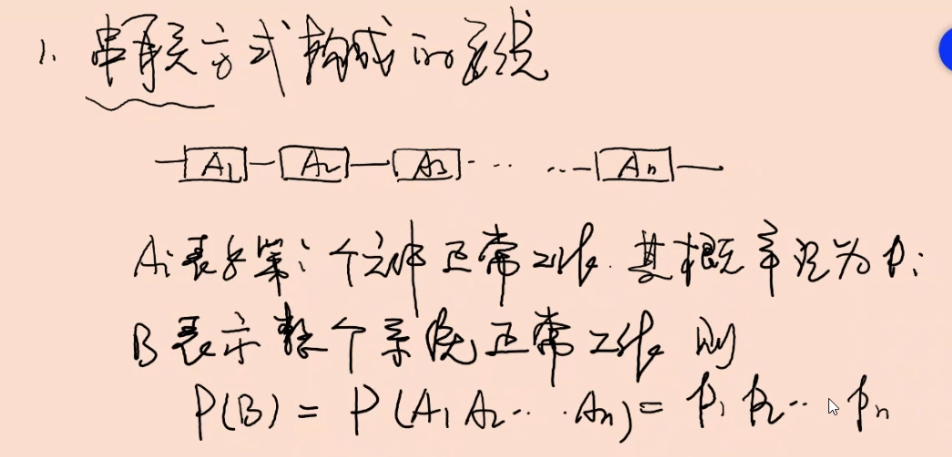 1. 串联方式构成的系统
A1 A2 A3 ... ... An
Ai表示第i个元件正常工作.其概率记为pi
B表示整个系统正常工作 则
P(B) = P(A1 A2 ... An) = p1 p2 ... pn